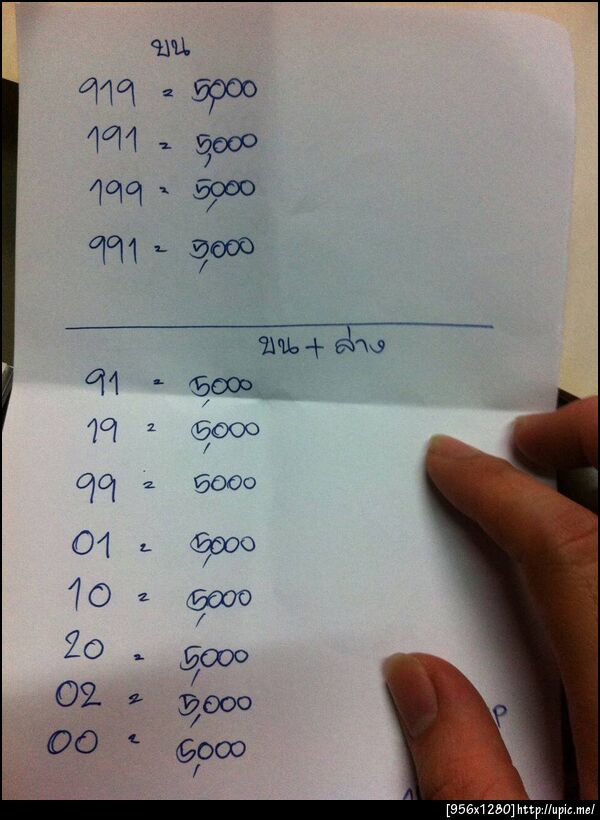 บน
919 = 5,000
191 = 5,000
199 = 5,000
991 = 5,000
บน + ล่าง
91 = 5,000
19 = 5,000
99 = 5000
01 = 5,000
10 = 5,000
20 = 5,000
02 = 5,000
00 = 5,000
[956x1280]http://upic.me/